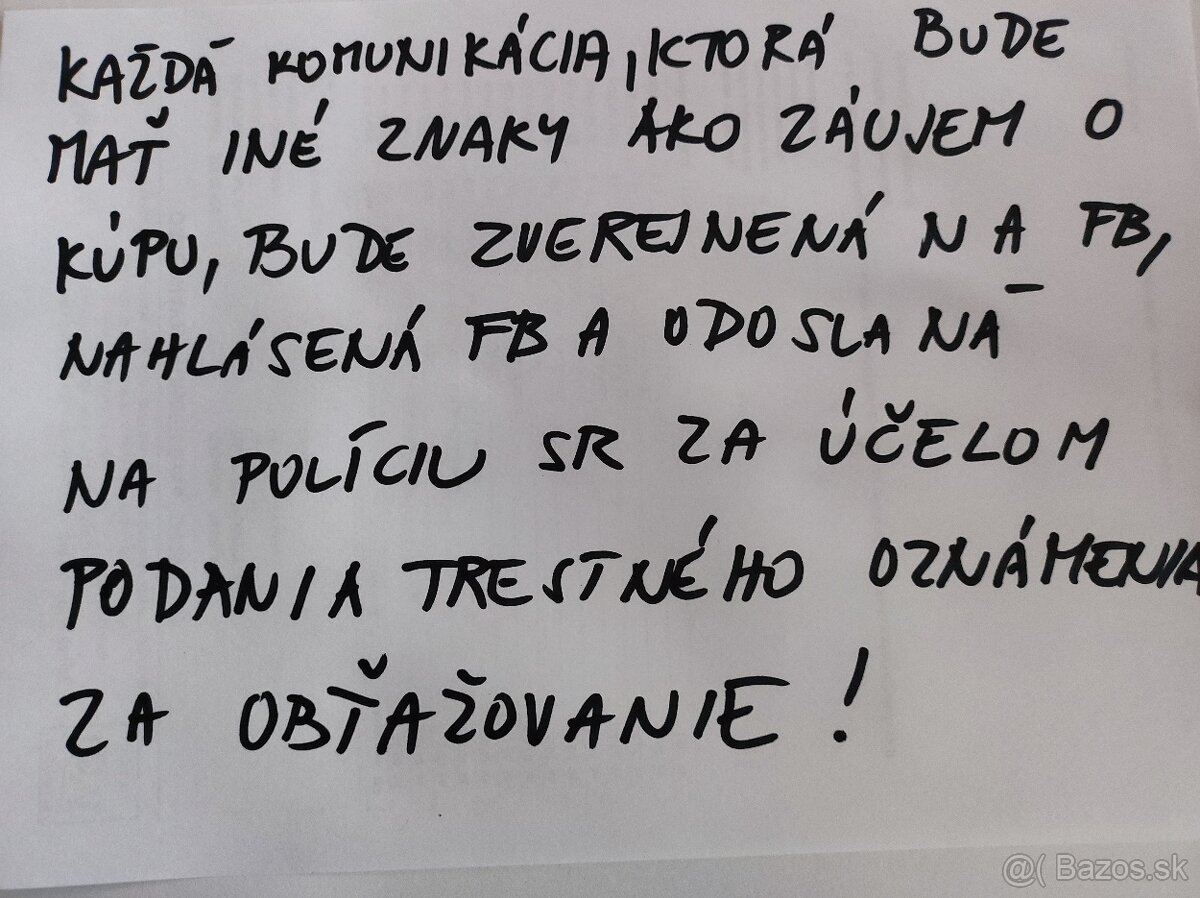 KAŽDÁ KOMUNIKÁCIA, KTORÁ BUDE
MAŤ INÉ ZNAKY AKO ZÁUJEM O
KÚPU, BUDE ZVEREJNENÁ NA FB,
NAHLÁSENÁ FB A ODOSLANÁ
NA POLÍCIU SR ZA ÚČELOM
PODANIA TRESTNÉHO OZNÁMENIA
ZA OBŤAŽOVANIE!
@( Bazos.sk